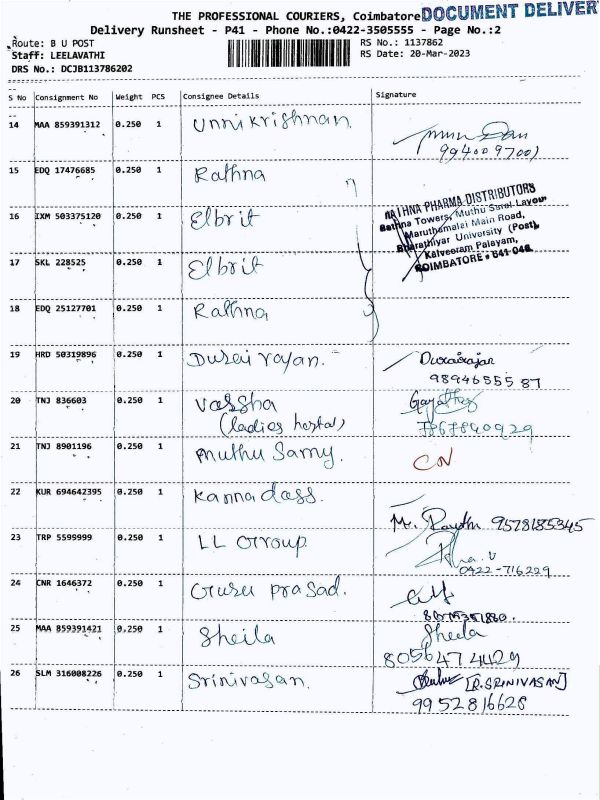 THE PROFESSIONAL COURIERS, Coimbatore DOCUMENT DELIVER
Delivery Runsheet - P41 - Phone No.:0422-3505555 - Page No.:2
Route: B U POST RS No.: 1137862
Staff: LEELAVATHI RS Date: 20-Mar-2023
DRS No.: DCJB113786202
S No Consignment No Weight PCS Consignee Details Signature
14 MAA 859391312 0.250 1 Unnikrishnan
9940097001
15 EDQ 17476685 0.250 1 Rathna
RATHNA PHARMA DISTRIBUTORS
Rathna Towers, Muthu Layout
Maruthamalai Main Road,
Bharathiyar University (Post),
Kalveeram Palayam,
COIMBATORE - 641 046
16 IXM 503375120 0.250 1 Elbrit
17 SKL 228525 0.250 1 Elbrit
18 EDQ 25127701 0.250 1 Rathna
19 HRD 50319896 0.250 1 Durai rajan. Durairajan
98946555 87
20 TNJ 836603 0.250 1 Varsha Gayathri
(ladies hostal) 7867840929
21 TNJ 8901196 0.250 1 Muthu Samy. CN
22 KUR 694642395 0.250 1 Kanna dass.
9578185345
23 TRP 5599999 0.250 1 LL Group
0422-716229
24 CNR 1646372 0.250 1 Guru prasad.
25 MAA 859391421 0.250 1 Sheila Sheila
8056474429
26 SLM 316008226 0.250 1 Srinivasan. [R.SRINIVASAN]
9952816628